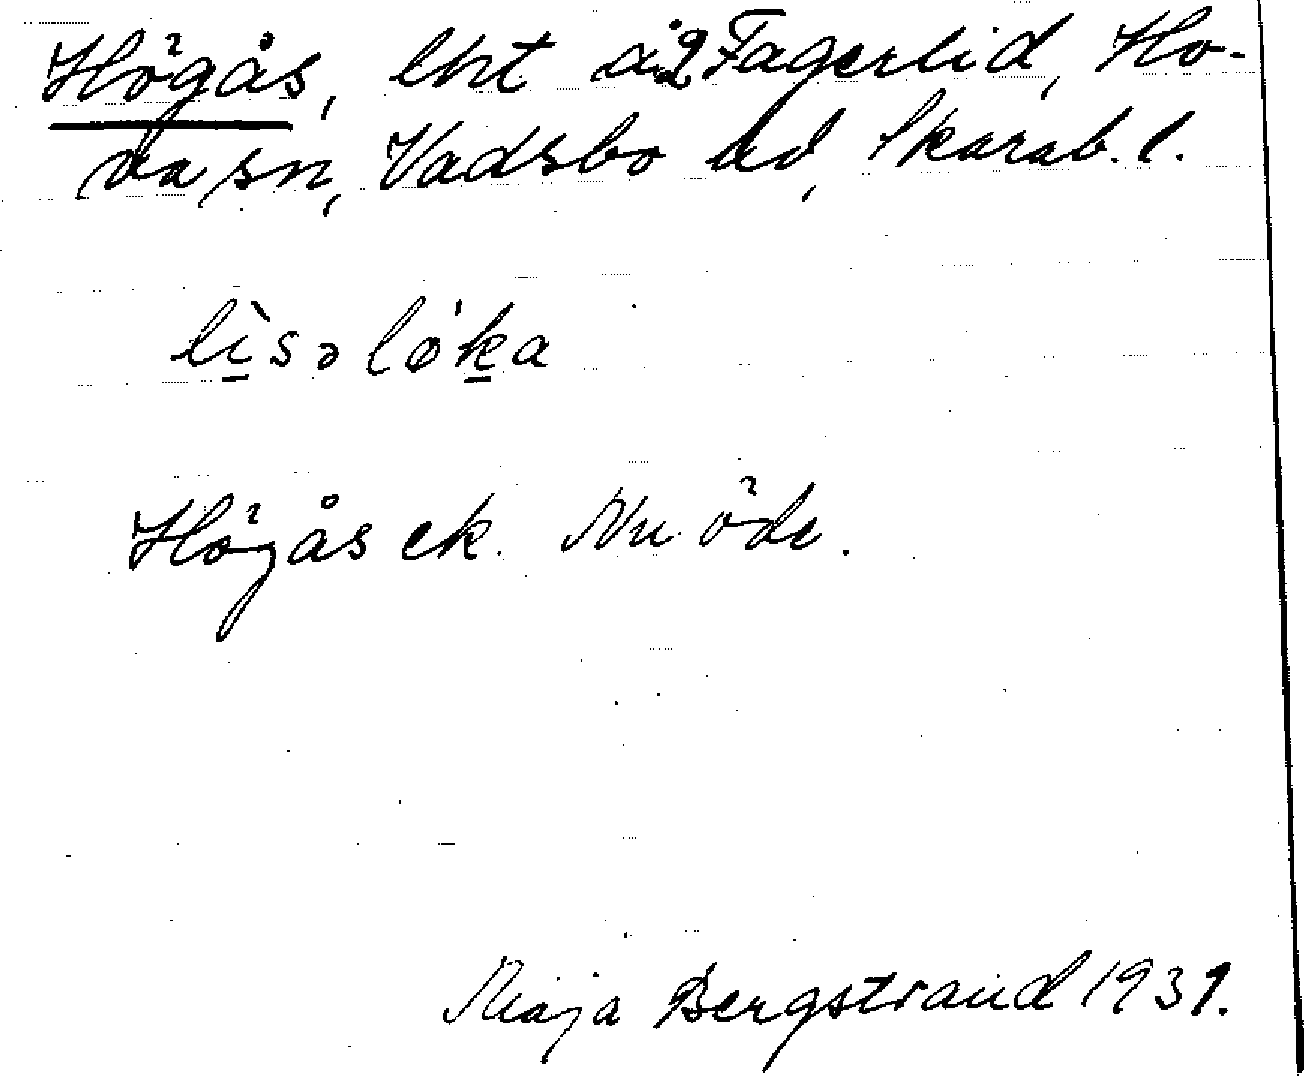 Högås, lht å 2 Fagerlid, Ho-
va sn, Vadsbo hd, Skarab. l.
lìsəlø'ka
Högås ek. Nu öde.
Maja Bergstrand 1931.